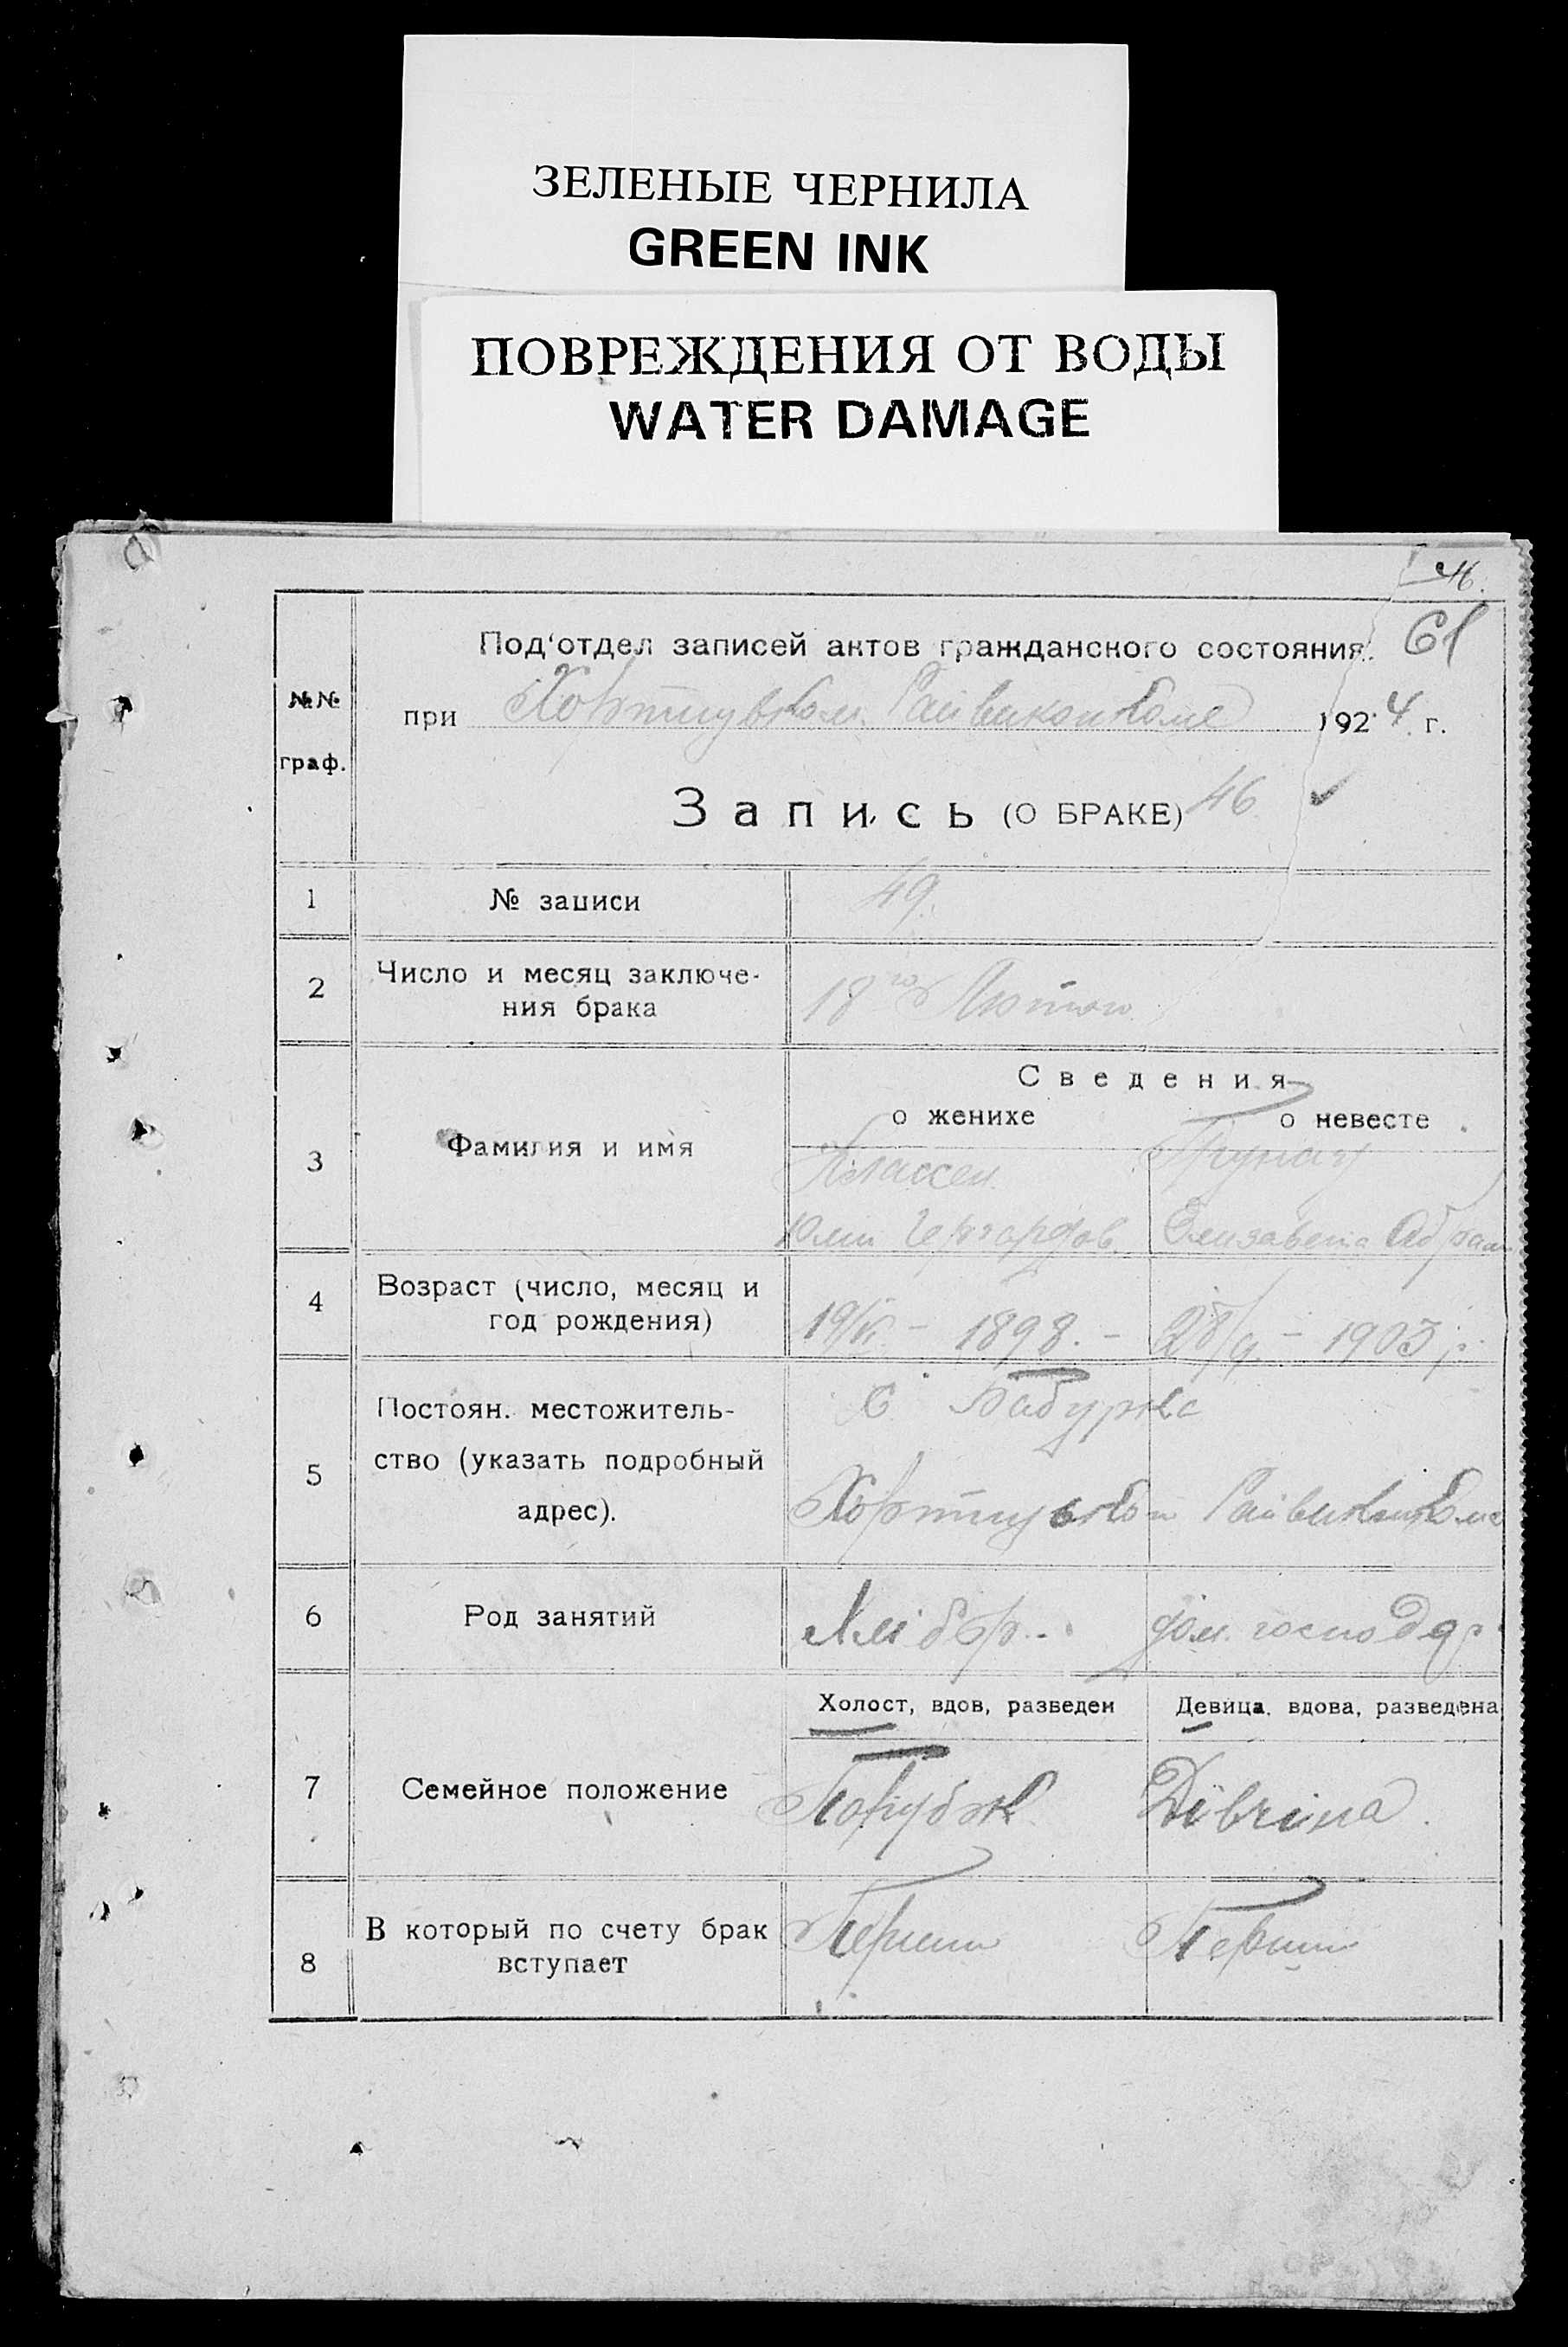 ЗЕЛЕНЫЕ ЧЕРНИЛА
GREEN INK
ПОВРЕЖДЕНИЯ ОТ ВОДЫ
WATER DAMAGE
46.
61
Под'отдел записей актов гражданского состояния.
№№ граф.
при Хортицьком Райвиконкоме 1924 г.
Запись (О БРАКЕ) 46
1 № записи 49.
2 Число и месяц заключе-
ния брака 18го Лютого
Сведения
о женихе о невесте
3 Фамилия и имя Классен
Гергардов. Елизавета Абрам
4 Возраст (число, месяц и
год рождения) 1898. – 28/9. – 1903 р.
5 Постоян. местожитель-
ство (указать подробный
адрес).
С Бабурка
Хортицьком Райвиконкоме
6 Род занятий Хлібор. дом. господар
Холост, вдов, разведен Девица, вдова, разведена
7 Семейное положение Парубок Дівчина
8 В который по счету брак
вступает Перший Перший